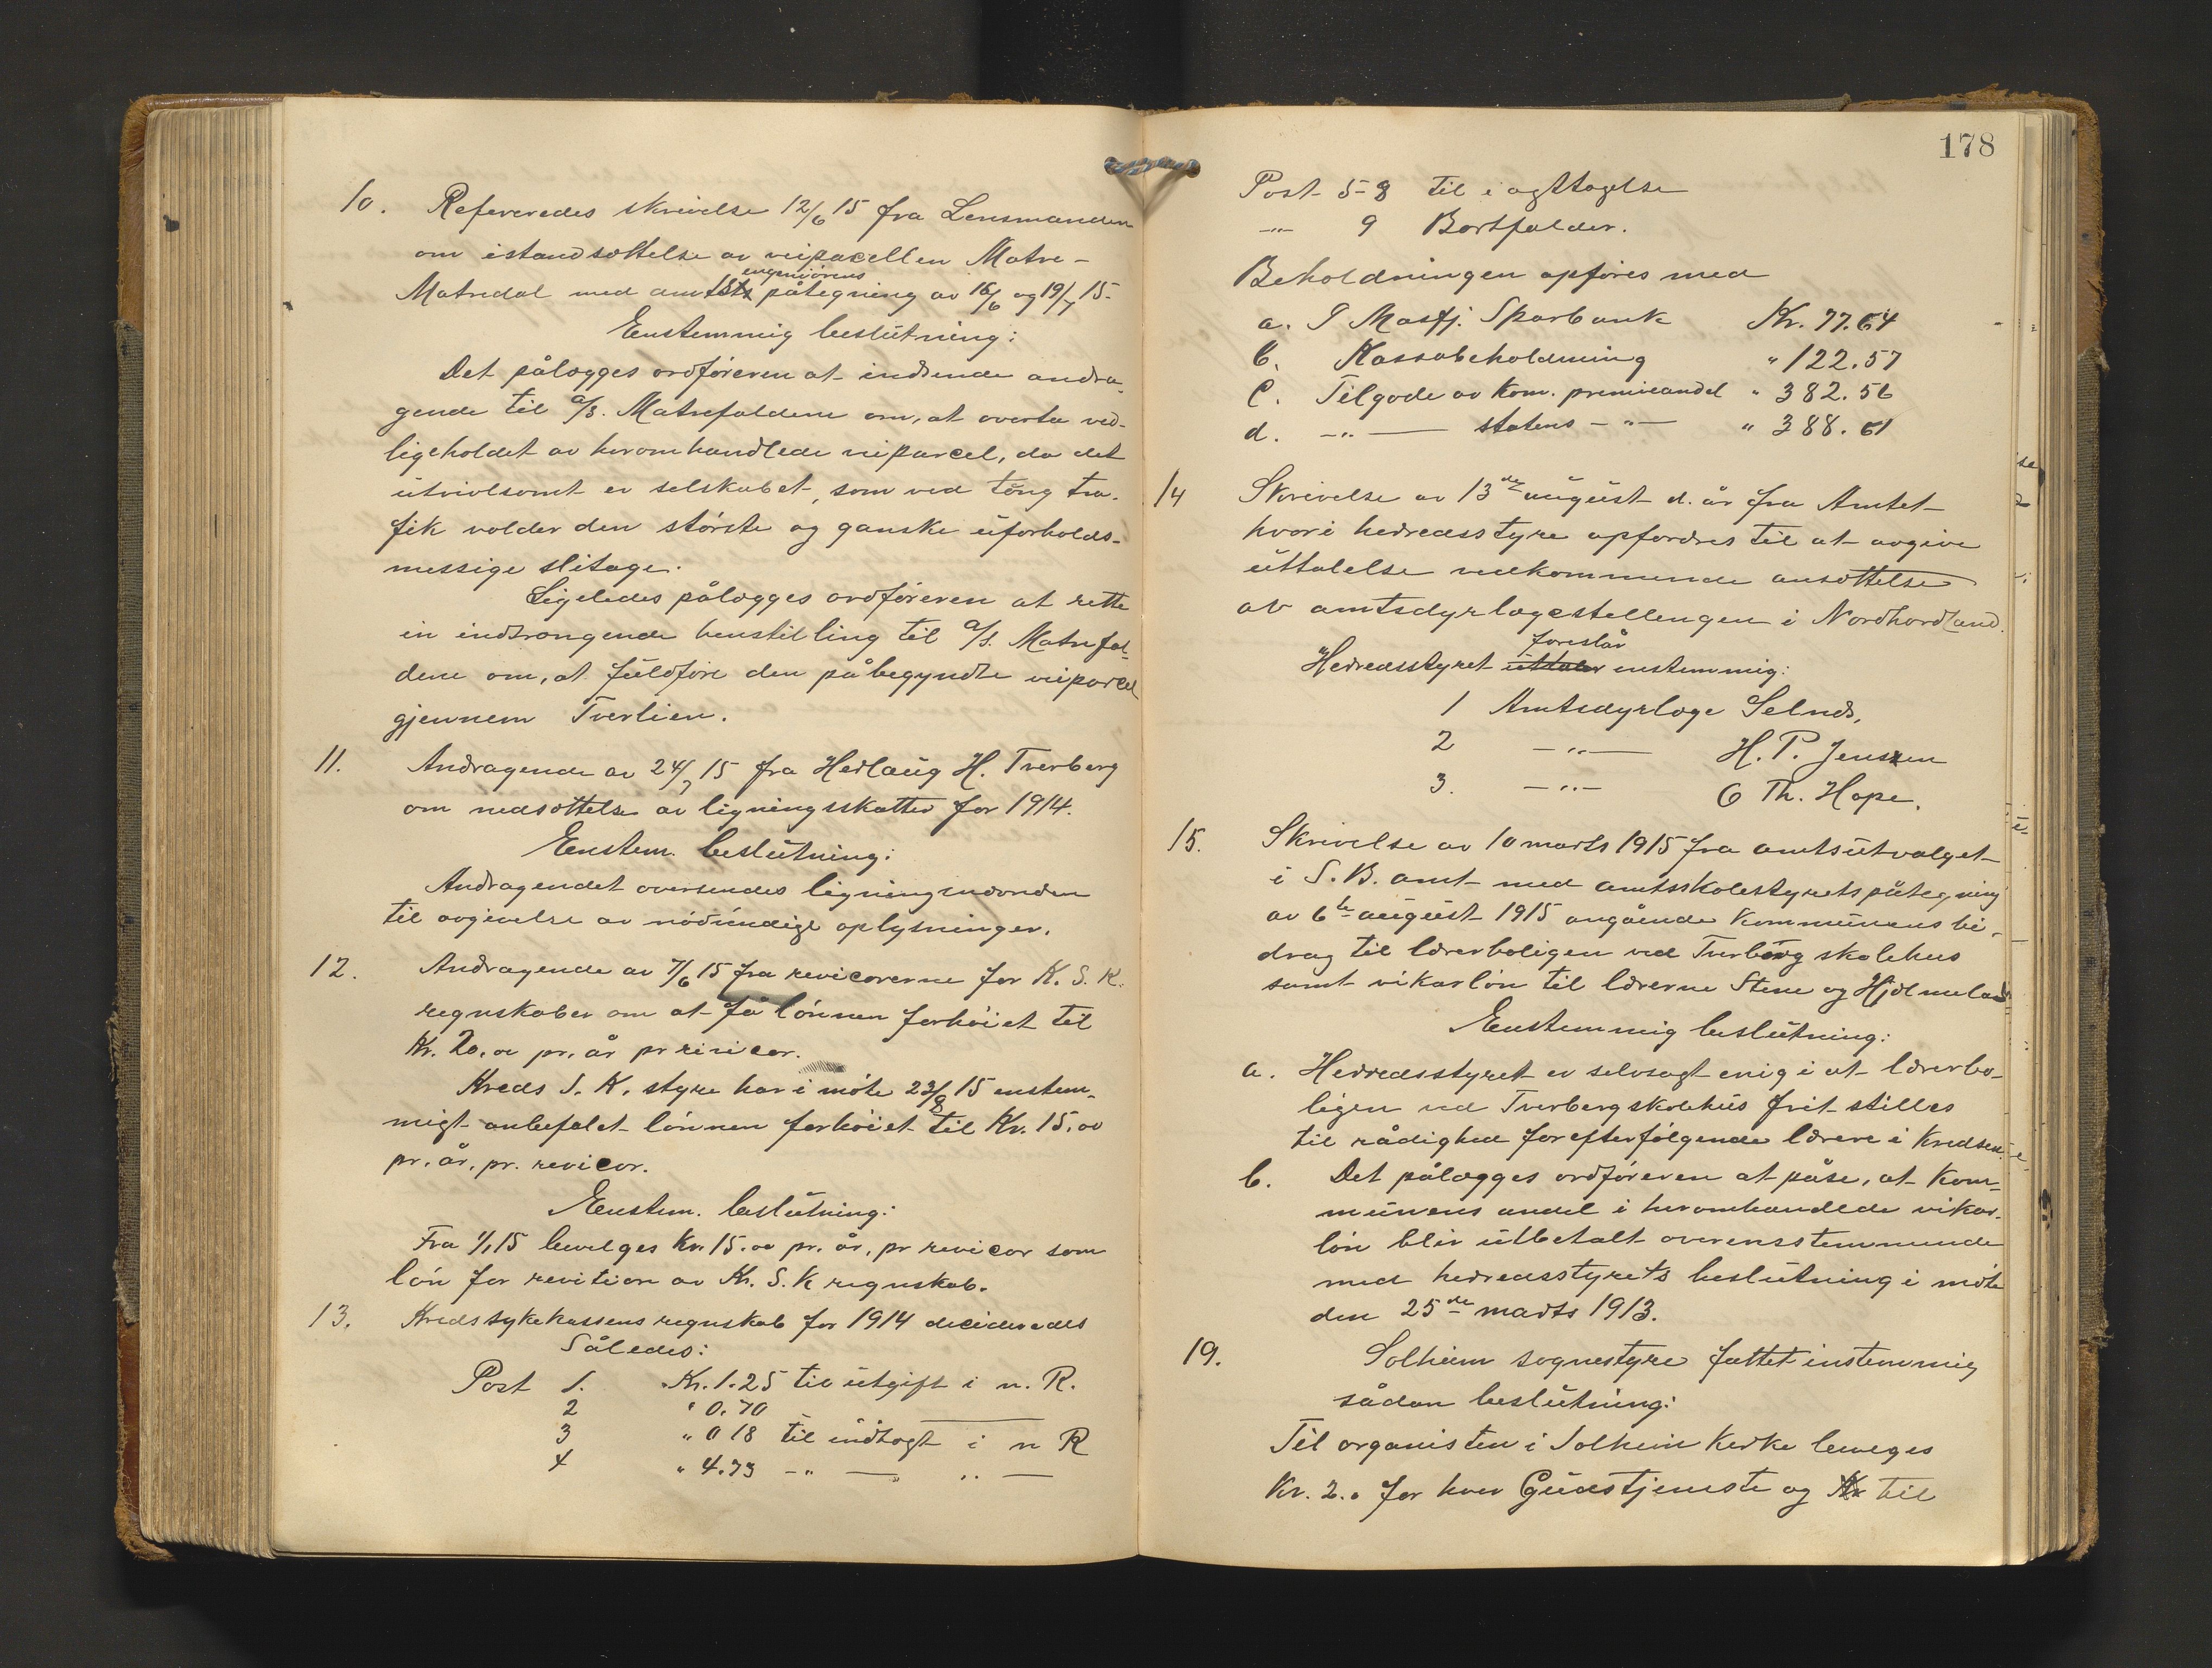 10. Refereredes skrivelse 12/6 15 fra Lensmanden
om istandsættelse av veiparcellen Matre-
engeniørens
Matredal med amtets påtegning av 16/6 og 19/7 15.
Enstemmig beslutning:
Det pålægges ordføreren at indsende andra-
gende til A/S. Matrefaldene om, at overta ved-
ligeholdet av heromhandlede veiparcel, da det
utvivlsomt er selskabet, som ved tung tra-
fik volder den største og ganske uforholds-
messige slitage.
Ligeledes pålægges ordføreren at rette
en indtrængende henstilling til A/S. Matrefal-
dene om, at fuldføre den påbegyndte veiparcel
gjennem Tverlien.
11. Andragende av 24/7 15 fra Herlaug H. Tverberg
om nedsættelse av ligningsskatten for 1914.
Enstem. beslutning:
Andragendet oversendes ligningsnevnden
til avgivelse av nødvendige oplysninger.
12. Andragende av 7/6 15 fra revicorerne for K. S. K.
regnskaber om at få lønnen forhøiet til
Kr. 20.00 pr. år pr revicor.
Kreds S. K. styre har i møte 23/8 15 enstem-
migt anbefalet lønnen forhøiet til Kr. 15.00
pr. år, pr. revicor.
Enstem. beslutning:
Fra 1/1 15 bevelges Kr. 15.00 pr. år, pr revicor som
løn for revition av Kr. S. K regnskab.
13. Kredssykekassens regnskab for 1914 decideredes
Således:
Post 1. Kr. 1.25 til utgift i n. R.
2 " 0.70 ———
3 " 0 18 til indtægt i n R
4 " 4.73 —"— —"—
178
Post 5-8 til iagttagelse
—"— 9 Bortfalder.
Beholdningen opføres med
a. I Masfj. Sparbank Kr. 77.64
b. Kassabeholdning " 122.57
c. Tilgode av kom. premieandel " 382.56
d. —"— statens —"— " 388.61
14 Skrivelse av 13de august d. år fra Amtet
hvori herredsstyre opfordres til at avgive
uttalelse vedkommende ansættelse
av amtsdyrlægestellengen i Nordhordland.
foreslår
Herredsstyret uttaler enstemmig:
1 Amtsdyrlæge Selnds,
2 —"— H. P. Jensen
3. —"— O Th. Hope.
15. Skrivelse av 10 marts 1915 fra amtsutvalget
i S. B. amt med amtsskolestyrets påtegning
av 6te august 1915 angående kommunens bi-
drag til lærerboligen ved Tverberg skolehus
samt vikarløn til lærerne Stene og Hjelmeland
Enstemmig beslutning:
a. Herredsstyret er selvsagt enig i at lærerbo-
ligen ved Tverberg skolehus frit stilles
til rådighed for efterfølgende lærere i kredsen.
b. Det pålægges ordføreren at påse, at kom-
munens andel i heromhandlede vikar-
løn blir utbetalt overensstemmende
med herredsstyrets beslutning i møte
den 25de marts 1913.
19. Solheim sognestyre fattet enstemmig
sådan beslutning:
Til organisten i Solheim kerke beveges
Kr. 2.0 for hver Gudstjeneste og Kr til